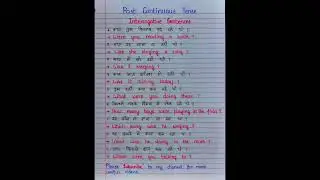 Past Continuous Tense
Interrogative Sentences
क्या तुम किताब पढ़ रहे थे ?
Were you reading a book ?
क्या वह गाना गा रही थी ?
Was she singing a song ?
क्या मैं सो रही थी ?
Was I sleeping ?
क्या आज बारिश हो रही थी ?
Was it raining today ?
तुम वहाँ क्या कर रहे थे ?
What were you doing there ?
कितने लड़के मैदान में खेल रहे थे ?
How many boys were playing in the field ?
वह कौन सा गाना गा रहा था ?
Which song was he singing ?
वह कमरे में क्या कर रहा था ?
What was he doing in the room ?
तुम किससे बात कर रहे थे ?
Whom were you talking to ?
Please Subscribe to my channel for more
useful videos